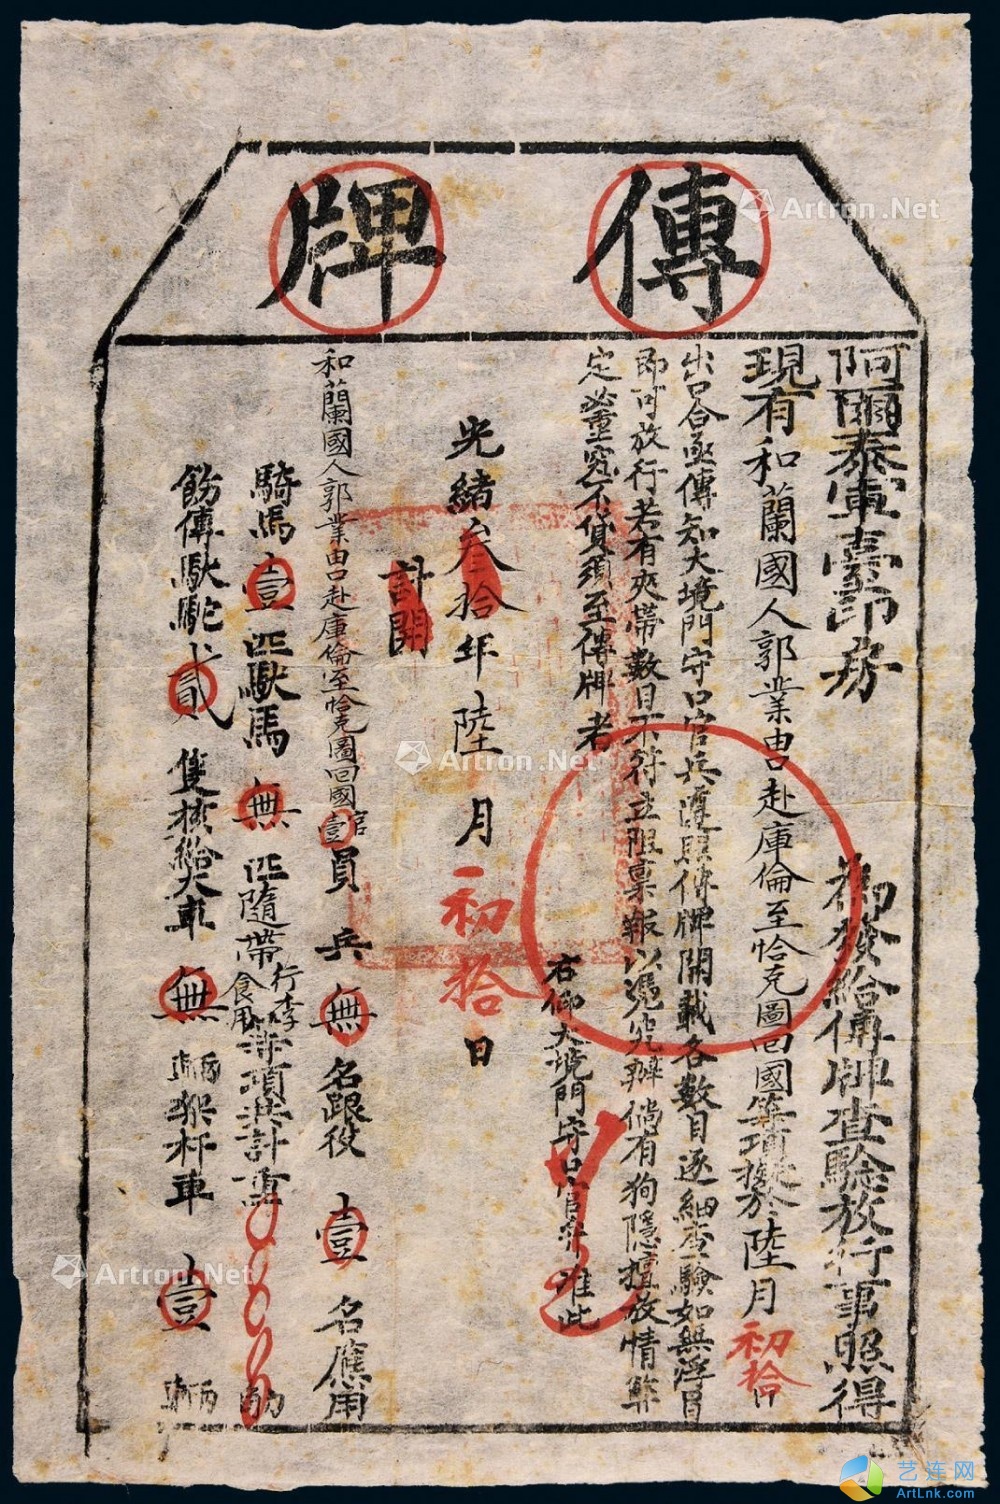 傳牌
阿爾泰軍臺印房 為發給傳牌查驗放行事照得
現有和蘭國人郭業由口赴庫倫至恰克圖回國等項擬於陸月初拾日
出口合亟傳知大境門守口官兵遵照傳牌開載各數目逐細查驗如無浮冒
即可放行若有夾帶數目不符立阻稟報以憑究辦倘有狥隱擅放情弊
定必重究不貸須至傳牌者
右仰大境門守口官弁准此
光緒叁拾年陸月初拾日
計開
和蘭國人郭業由口赴庫倫至恰克圖回國官壹員兵無名跟役壹名應用
騎馬壹匹馱馬無匹隨帶行李食用等項共計重 觔
飭傳馱駝貳隻核給大車無輛架杆車壹輛
Artron.Net
Artron.Net
Artron.Net
Artron.Net
艺连网
ArtLnk.com